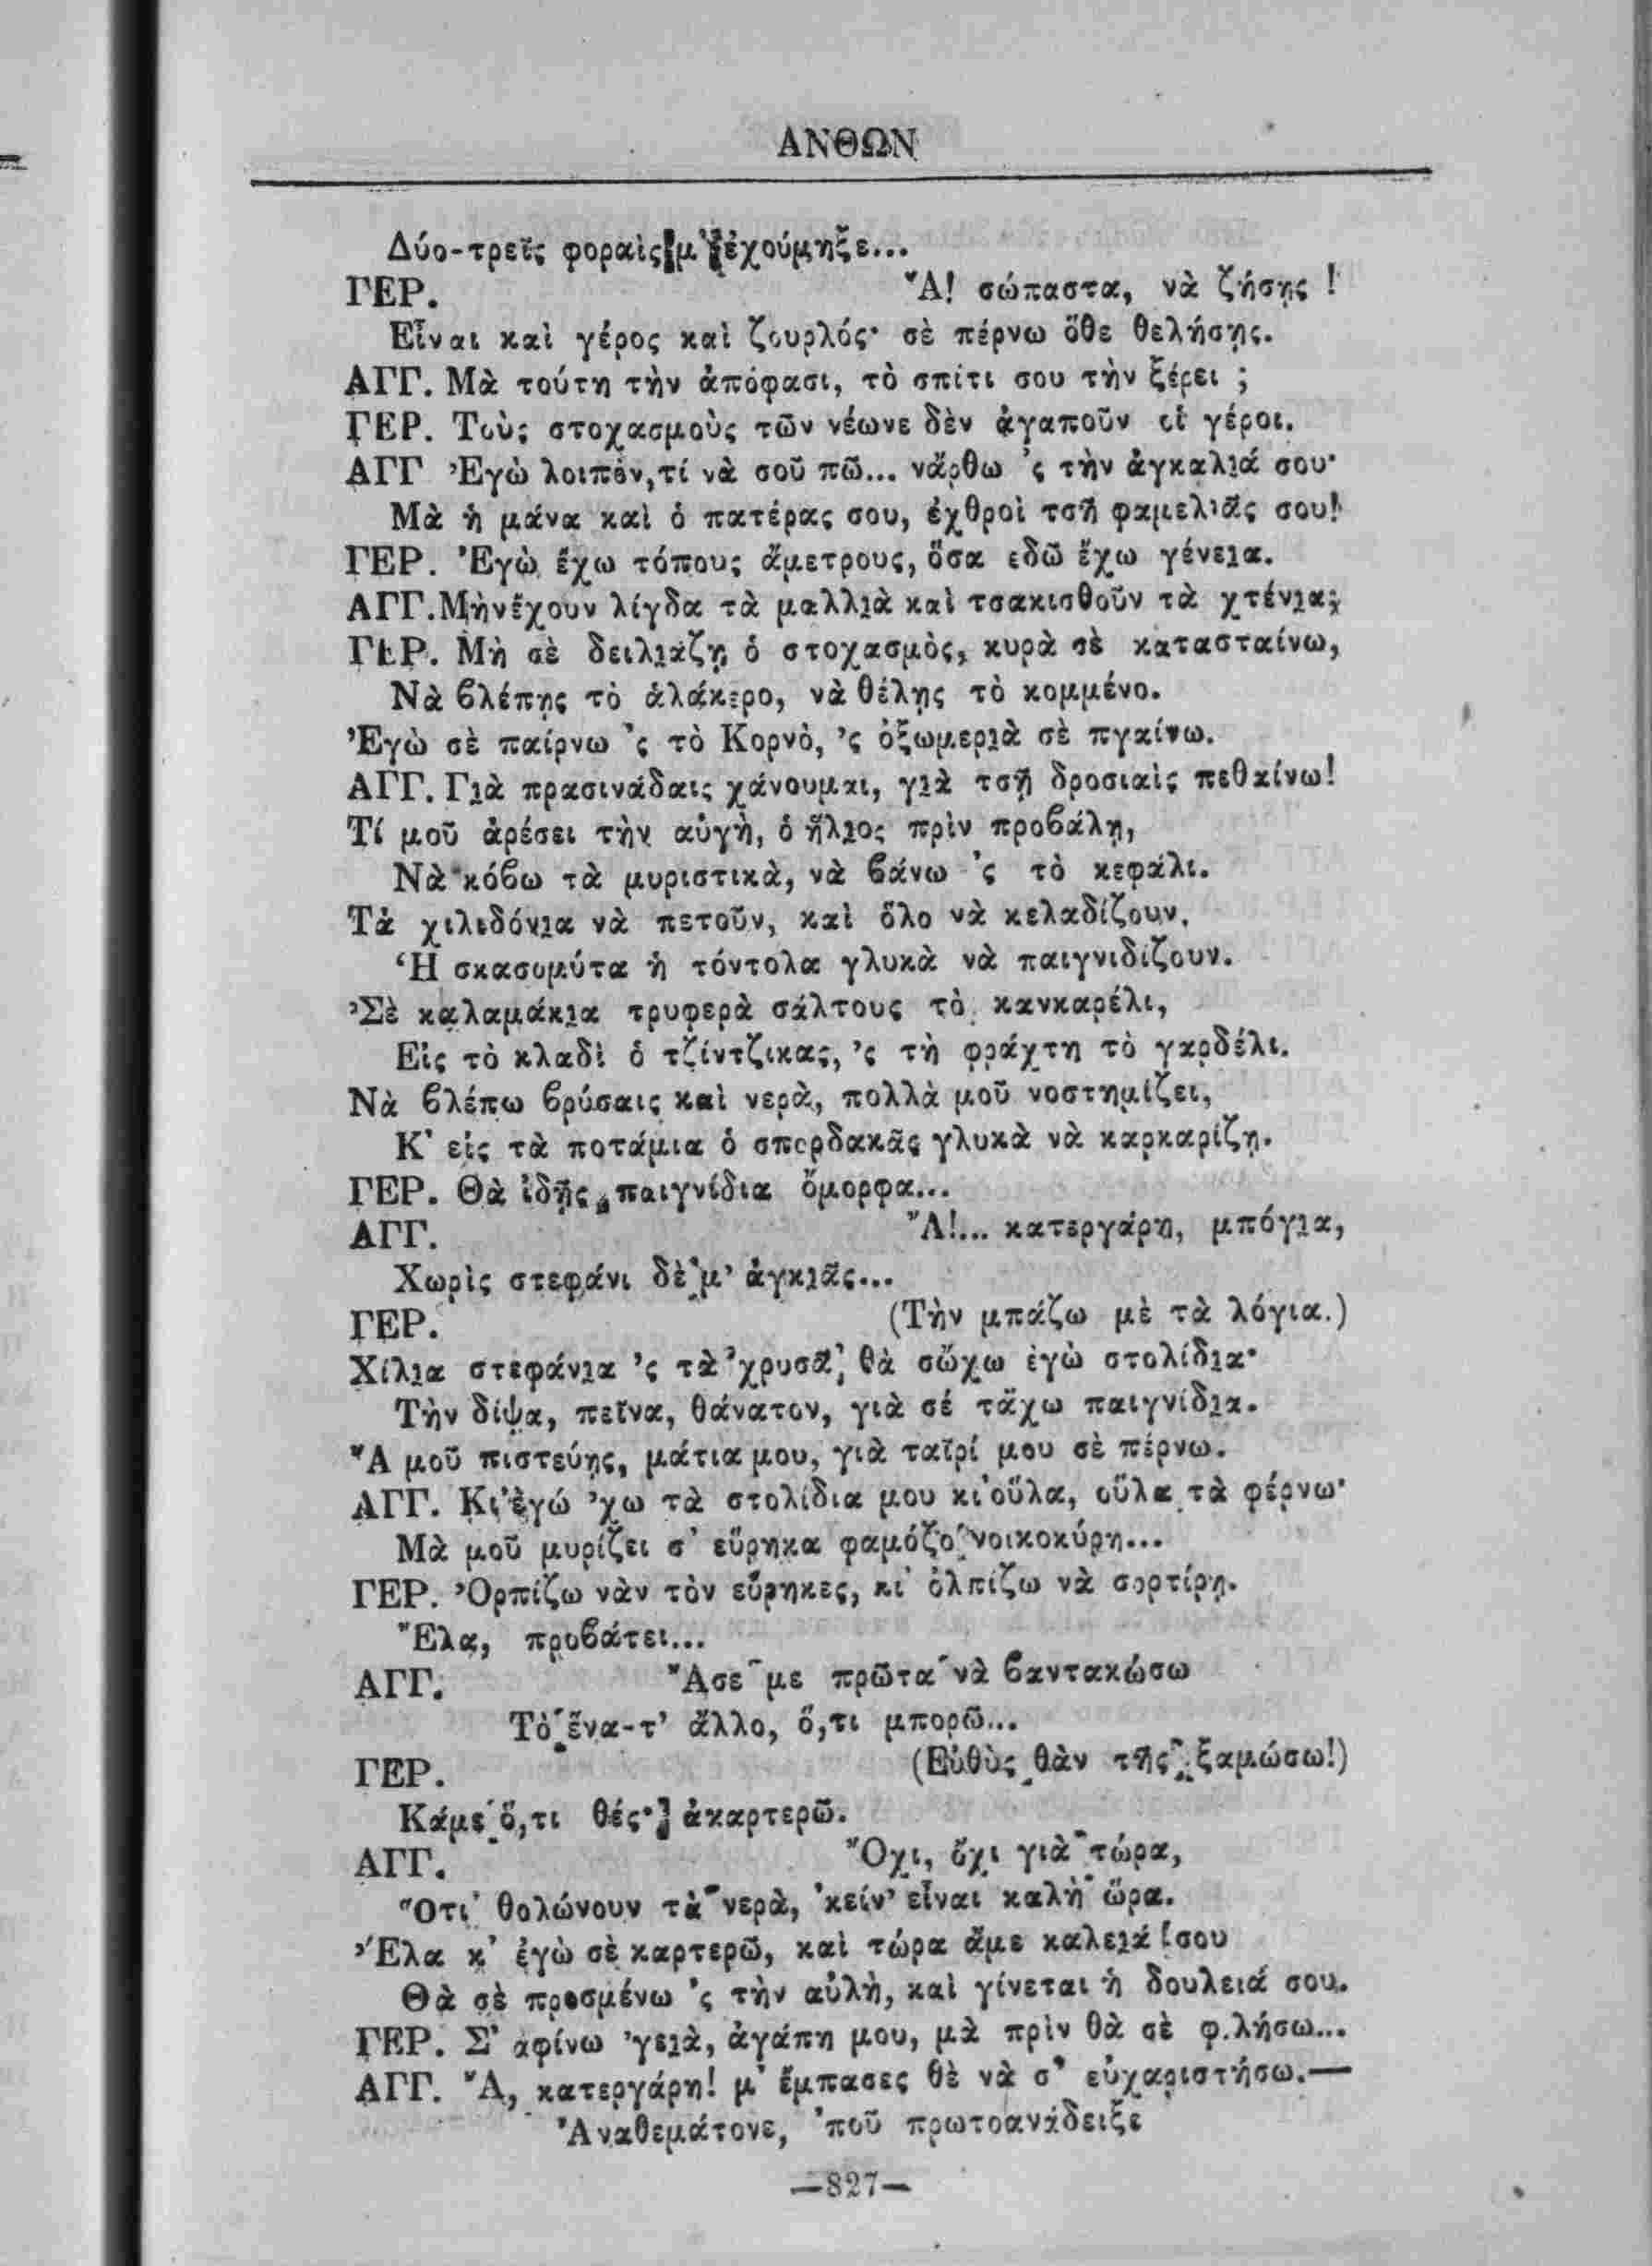 ΑΝΘΩΝ
Δύο-τρεῖς φοραὶς μ' ἐχούμηξε...
ΓΕΡ. Ἄ! σώπαστα, νὰ ζήσῃς !
Εἶναι καὶ γέρος καὶ ζουρλός· σὲ πέρνω ὅθε θελήσῃς.
ΑΓΓ. Μὰ τούτη τὴν ἀπόφασι, τὸ σπίτι σου τὴν ξέρει ;
ΓΕΡ. Τοὺς στοχασμοὺς τῶν νέωνε δὲν ἀγαποῦν οἱ γέροι.
ΑΓΓ Ἐγὼ λοιπὸν, τί νὰ σοῦ πῶ... νἄρθω 'ς τὴν ἀγκαλιά σου·
Μὰ ἡ μάνα καὶ ὁ πατέρας σου, ἐχθροὶ τσῆ φαμελιᾶς σου!
ΓΕΡ. Ἐγὼ ἔχω τόπους ἄμετρους, ὅσα εδῶ ἔχω γένεια.
ΑΓΓ. Μὴν ἔχουν λίγδα τὰ μαλλιὰ καὶ τσακισθοῦν τὰ χτένια;
ΓΕΡ. Μὴ σὲ δειλιάζῃ ὁ στοχασμὸς, κυρὰ σὲ κατασταίνω,
Νὰ βλέπῃς τὸ ἀλάκερο, νὰ θέλῃς τὸ κομμένο.
Ἐγὼ σὲ παίρνω 'ς τὸ Κορνὸ, 'ς ὀξωμεριὰ σὲ πγαίνω.
ΑΓΓ. Γιὰ πρασινάδαις χάνουμαι, γιὰ τσῆ δροσιαὶς πεθαίνω!
Τί μοῦ ἀρέσει τὴν αὐγὴ, ὁ ἥλιος πρὶν προβάλῃ,
Νὰ κόβω τὰ μυριστικὰ, νὰ βάνω 'ς τὸ κεφάλι.
Τὰ χιλιδόνια νὰ πετοῦν, καὶ ὅλο νὰ κελαδίζουν,
Ἡ σκασομύτα ἡ τόντολα γλυκὰ νὰ παιγνιδίζουν.
Σὲ καλαμάκια τρυφερὰ σάλτους τὸ κανκαρέλι,
Εἰς τὸ κλαδὶ ὁ τζίντζικας, 'ς τὴ φράχτη τὸ γαρδέλι.
Νὰ βλέπω βρύσαις καὶ νερὰ, πολλὰ μοῦ νοστημίζει,
Κ' εἰς τὰ ποτάμια ὁ σπορδακᾶς γλυκὰ νὰ καρκαρίζῃ.
ΓΕΡ. Θὰ ἰδῇς παιγνίδια ὄμορφα...
ΑΓΓ. Ἄ!... κατεργάρη, μπόγια,
Χωρὶς στεφάνι δὲ μ' ἀγκιᾶς...
ΓΕΡ. (Τὴν μπάζω μὲ τὰ λόγια.)
Χίλια στεφάνια 'ς τὰ χρυσᾶ, θὰ σὤχω ἐγὼ στολίδια·
Τὴν δίψα, πεῖνα, θάνατον, γιὰ σέ τἄχω παιγνίδια.
Ἄ μοῦ πιστεύῃς, μάτια μου, γιὰ ταῖρί μου σὲ πέρνω.
ΑΓΓ. Κι' ἐγώ 'χω τὰ στολίδια μου κι' οὕλα, οὕλα τὰ φέρνω·
Μὰ μοῦ μυρίζει σ' εὕρηκα φαμόζο νοικοκύρη...
ΓΕΡ. Ὀρπίζω νὰν τὸν εὕρηκες, κι' ὀλπίζω νὰ σορτίρῃ.
Ἔλα, προβάτει...
ΑΓΓ. Ἄσε με πρῶτα νὰ βαντακώσω
Τὸ ἕνα-τ' ἄλλο, ὅ,τι μπορῶ...
ΓΕΡ. (Εὐθὺς θὰν τῆς ξαμώσω!)
Κάμε ὅ,τι θές· ἀκαρτερῶ.
ΑΓΓ. Ὄχι, ὄχι γιὰ τώρα,
Ὅτι θολώνουν τὰ νερὰ, 'κείν' εἶναι καλὴ ὥρα.
Ἔλα κ' ἐγὼ σὲ καρτερῶ, καὶ τώρα ἄμε καλειά σου
Θὰ σὲ προσμένω 'ς τὴν αὐλὴ, καὶ γίνεται ἡ δουλειά σου.
ΓΕΡ. Σ' αφίνω 'γειὰ, ἀγάπη μου, μὰ πρὶν θὰ σὲ φιλήσω...
ΑΓΓ. Ἄ, κατεργάρη! μ' ἔμπασες θὲ νὰ σ' εὐχαριστήσω.—
Ἀναθεμάτονε, 'ποῦ πρωτοανάδειξε
—827—